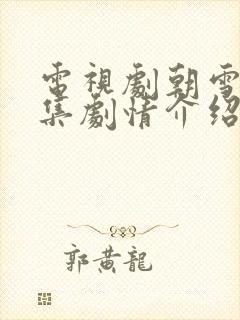 電視劇朝雪
集劇情介紹
郭黃龍